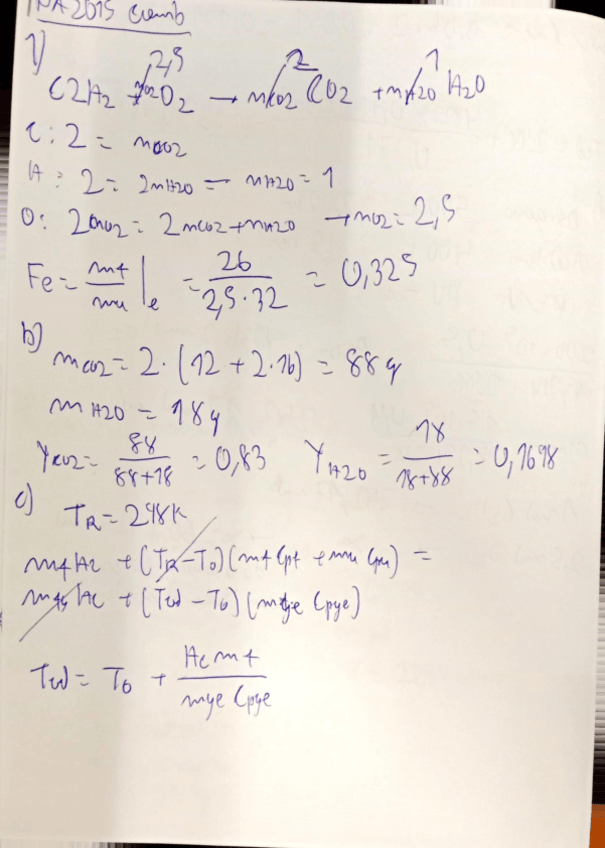 1)
2,5 2 1
C2H2 + nO2 O2 → nCO2 CO2 + nH2O H2O
C: 2 = nCO2
H: 2 = 2nH2O = nH2O = 1
O: 2nO2 = 2nCO2 + nH2O → nO2 = 2,5
Fe = mf/mu |e = 26/2,5·32 = 0,325
b)
mCO2 = 2·(12 + 2·16) = 88g
mH2O = 18g
YCO2 = 88/88+18 = 0,83 YH2O = 18/18+88 = 0,1698
c)
TR = 298K
mf Hc + (TR-T0)(mf Cpf + mu Cpu) =
mfg Hc + (Tad - T0)(mge Cpge)
Tad = T0 + Hc mf/mge Cpge